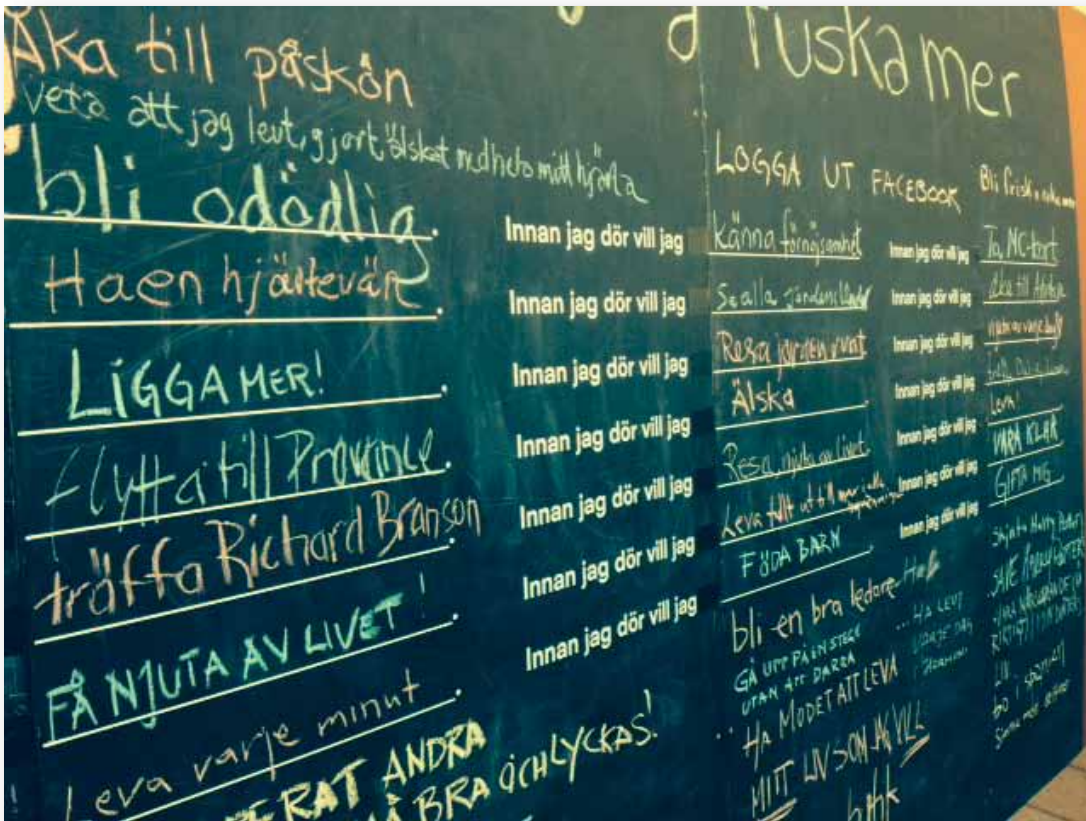 Åka till påskön
veta att jag levt, gjort, älskat med hela mitt hjärta
bli odödlig.
Ha en hjärtevän
LIGGA MER!
flytta till Provence.
träffa Richard Branson
FÅ NJUTA AV LIVET!
Leva varje minut
RAT ANDRA
BRA OCH LYCKAS!
Innan jag dör vill jag
Innan jag dör vill jag
Innan jag dör vill jag
Innan jag dör vill jag
Innan jag dör vill jag
Innan jag dör vill jag
Innan jag dör vill jag
d Tuska mer
LOGGA UT FACEBOOK
känna förnöjsamhet
Se alla jordens länder
Resa jorden runt
Älska
Resa, njuta av livet.
Leva fullt ut till
FÖDA BARN
bli en bra ledare
GÅ UPP PÅ EN STEGE
UTAN ATT DARRA
HA MODET ATT LEVA
MITT LIV SOM JAG VILL
Innan jag dör vill jag
Innan jag dör vill jag
Innan jag dör vill jag
Innan jag dör vill jag
Innan jag dör vill jag
Innan jag dör vill jag
Innan jag dör vill jag
HA LEVT
VARJE DAG
I HARMONI
Bli frisk
Ta MC-kort
åka till
njuta av varje dag
Leva!
VARA KLAR
GIFTA MIG
Harry Potter
SAVE
bo i spanien